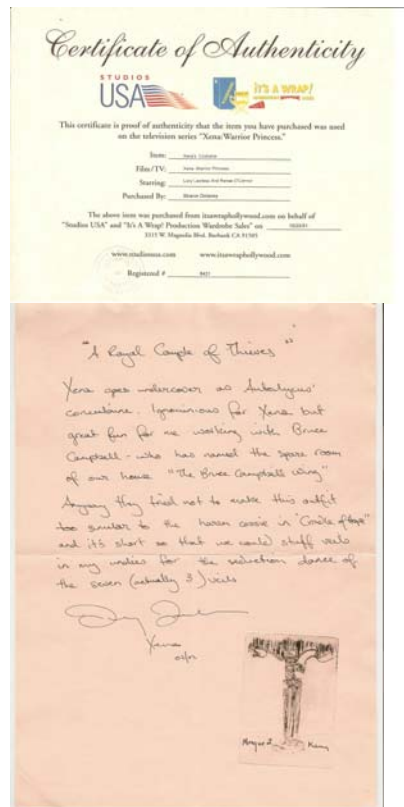 Certificate of Authenticity
STUDIOS
USA
IT'S A WRAP!
This certificate is proof of authenticity that the item you have purchased was used
on the television series "Xena/Warrior Princess."
Item: Xena's Costume
Film/TV: Xena Warrior Princess
Starring: Lucy Lawless And Renee O'Connor
Purchased By:
The above item was purchased from itsawraphollywood.com on behalf of
"Studios USA" and "It's A Wrap! Production Wardrobe Sales" on
3315 W. Magnolia Blvd. Burbank CA 91505
www.studiosusa.com www.itsawraphollywood.com
Registered #
"A Royal Couple of Thieves"
Xena goes undercover as Autolycus'
concubine. Ignominious for Xena but
great fun for me working with Bruce
Campbell - who has named the spare room
of our house "The Bruce Campbell Wing"
Anyway they tried not to make this outfit
too similar to the harem cossie in
and it's short so that we could stuff veils
in my undies for the seduction dance of
the seven (actually 3) veils
Xena